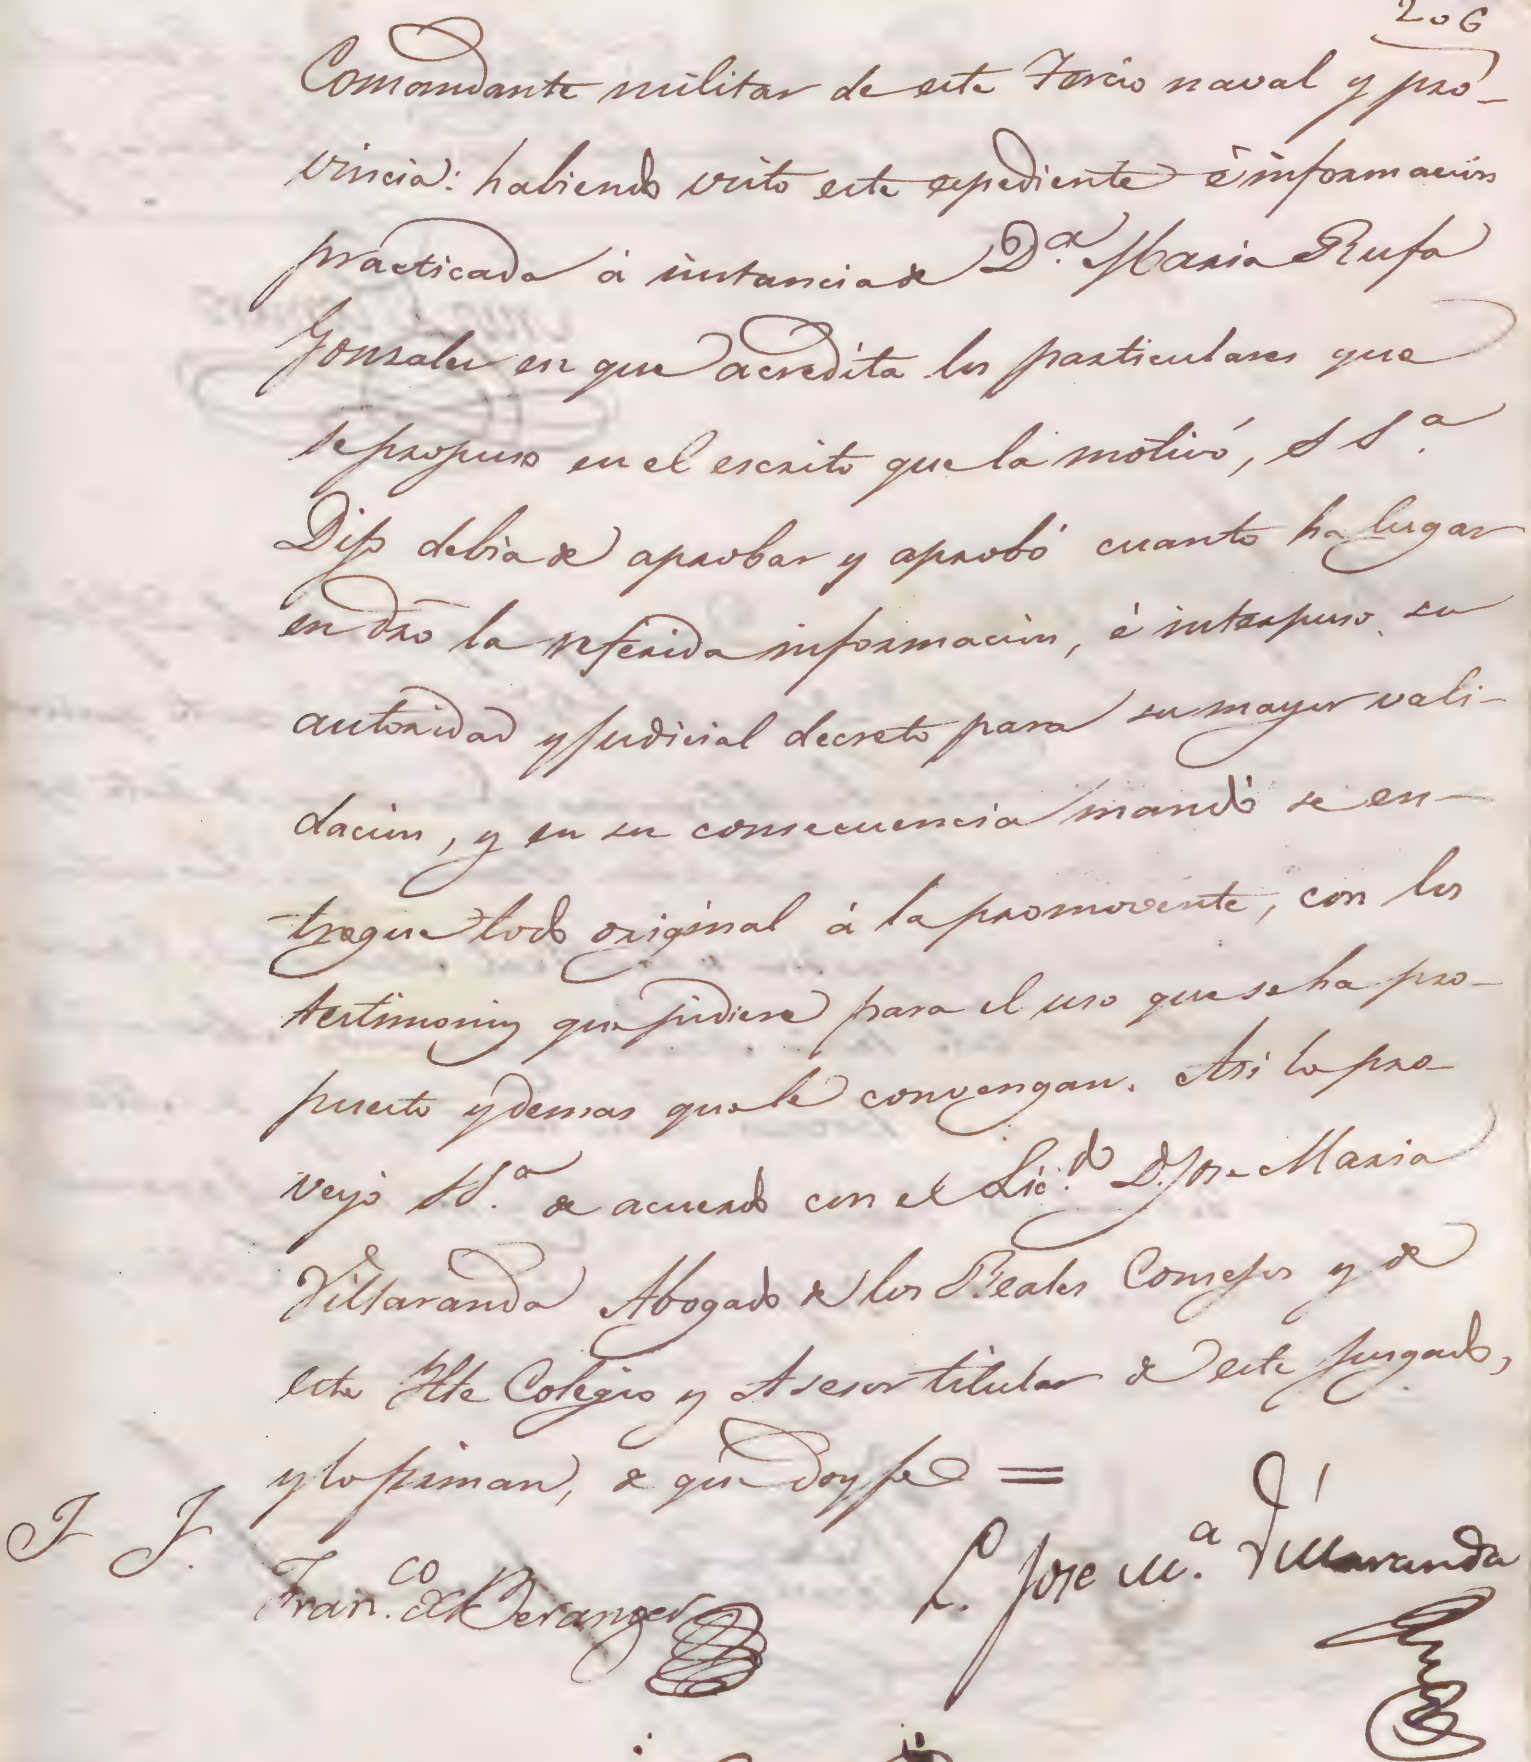 206
Comandante militar de este Tercio naval y pro-
vincia: habiendo visto este espediente é informacion
practicada á instancia de D.ª Maria Rufa
Gonzalez en que acredita los particulares que
se propuso en el escrito que la motivó, S S.ª
Dijo debia de aprobar y aprobó cuanto ha lugar
en dro la referida informacion, é interpuso su
autoridad y judicial decreto para su mayor vali-
dacion, y en su consecuencia mandó se en-
tregue todo original á la promovente, con los
testimonios que pidiere para el uso que se ha pro-
puesto y demas que le convengan. Asi lo pro-
veyó S S.ª de acuerdo con el Lic.do D. Jose Maria
Villaranda Abogado de los Reales Consejos y de
este Ilte Colegio y Asesor titular de este juzgado,
y lo firman, de que doy fe =
Fran.co de Beranger
L. Jose M.ª Villaranda